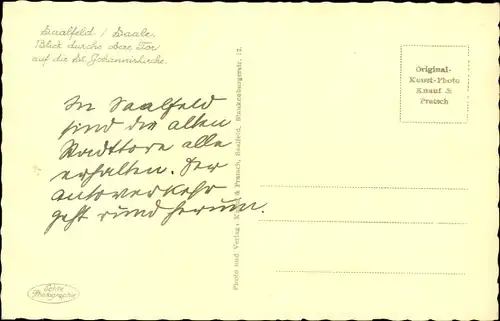 Saalfeld / Saale.
Blick durchs obere Tor
auf die St. Johanniskirche.
In Saalfeld
sind die alten
Stadttore alle
erhalten. Der
Autoverkehr
geht rund herum.
Photo und Verlag: Knauf & Pratsch, Saalfeld, Blankenburgerstr. 12.
Original-
Kunst-Photo
Knauf &
Pratsch
Echte
Photographie